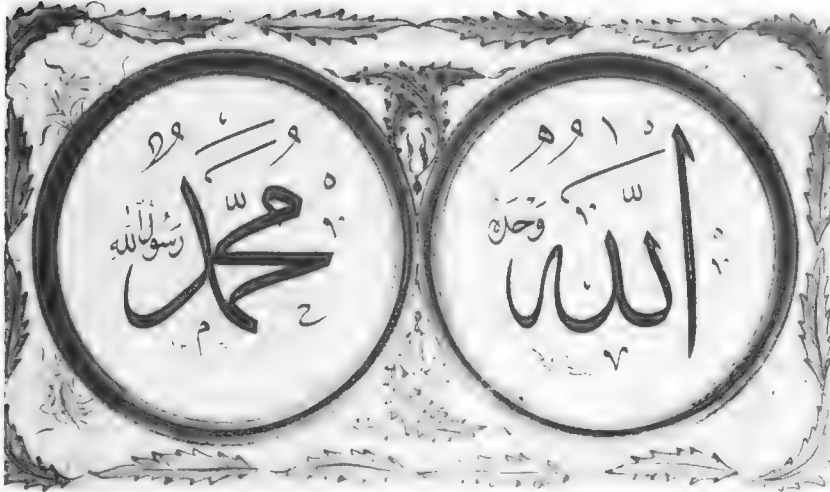 الله
وحده
محمد
رسول الله